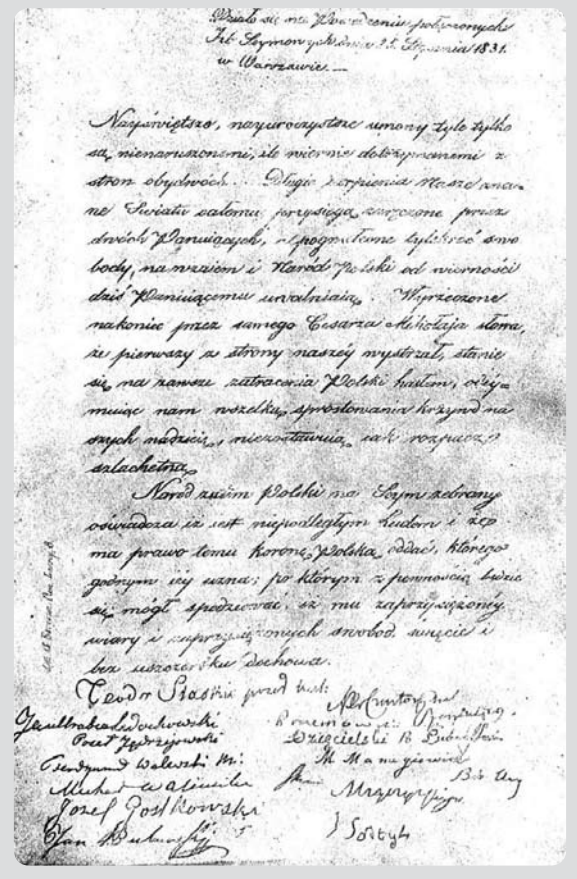 Działo się na Posiedzeniu połączonych
Izb Seymowych dnia 25. Stycznia 1831.
w Warszawie. —
Nayświętsze, nayuroczystsze umowy tyle tylko
są nienaruszonemi, ile wiernie dotrzymanemi z
stron obydwóch. Długie cierpienia nasze zna-
ne Światu całemu, przysięgą zaręczone przez
dwóch Panuiących, a pogwałcone tylekroć swo
body, nawzaiem i Naród Polski od wierności
dziś Panuiącemu uwalniaią. Wyrzeczone
nakoniec przez samego Cesarza Mikołaja słowa,
że pierwszy z strony naszéy wystrzał, stanie
się na zawsze zatracenia Polski hasłem, odéy=
muiąc nam wszelką sprostowania krzywd na
szych nadzieię, niezostawuią iak rozpacz
szlachetną.
Naród zatém Polski na Seym zebrany
oświadcza iż iest niepodległym Ludem i żep
ma prawo temu Koronę Polską oddać, którego
godnym iéy uzna; po którym z pewnością będzie
się mógł spodziewać, iż mu zaprzysiężonéy
wiary i zaprzysiężonych swobod święcie i
bez uszczerbku dochowa.
Teodor
Jan Ledochowski
Jędrzejowski
Ferdynand Walewski
Michał
Józef Postkowski
Jan
Dzięcielski
J Sołtyk